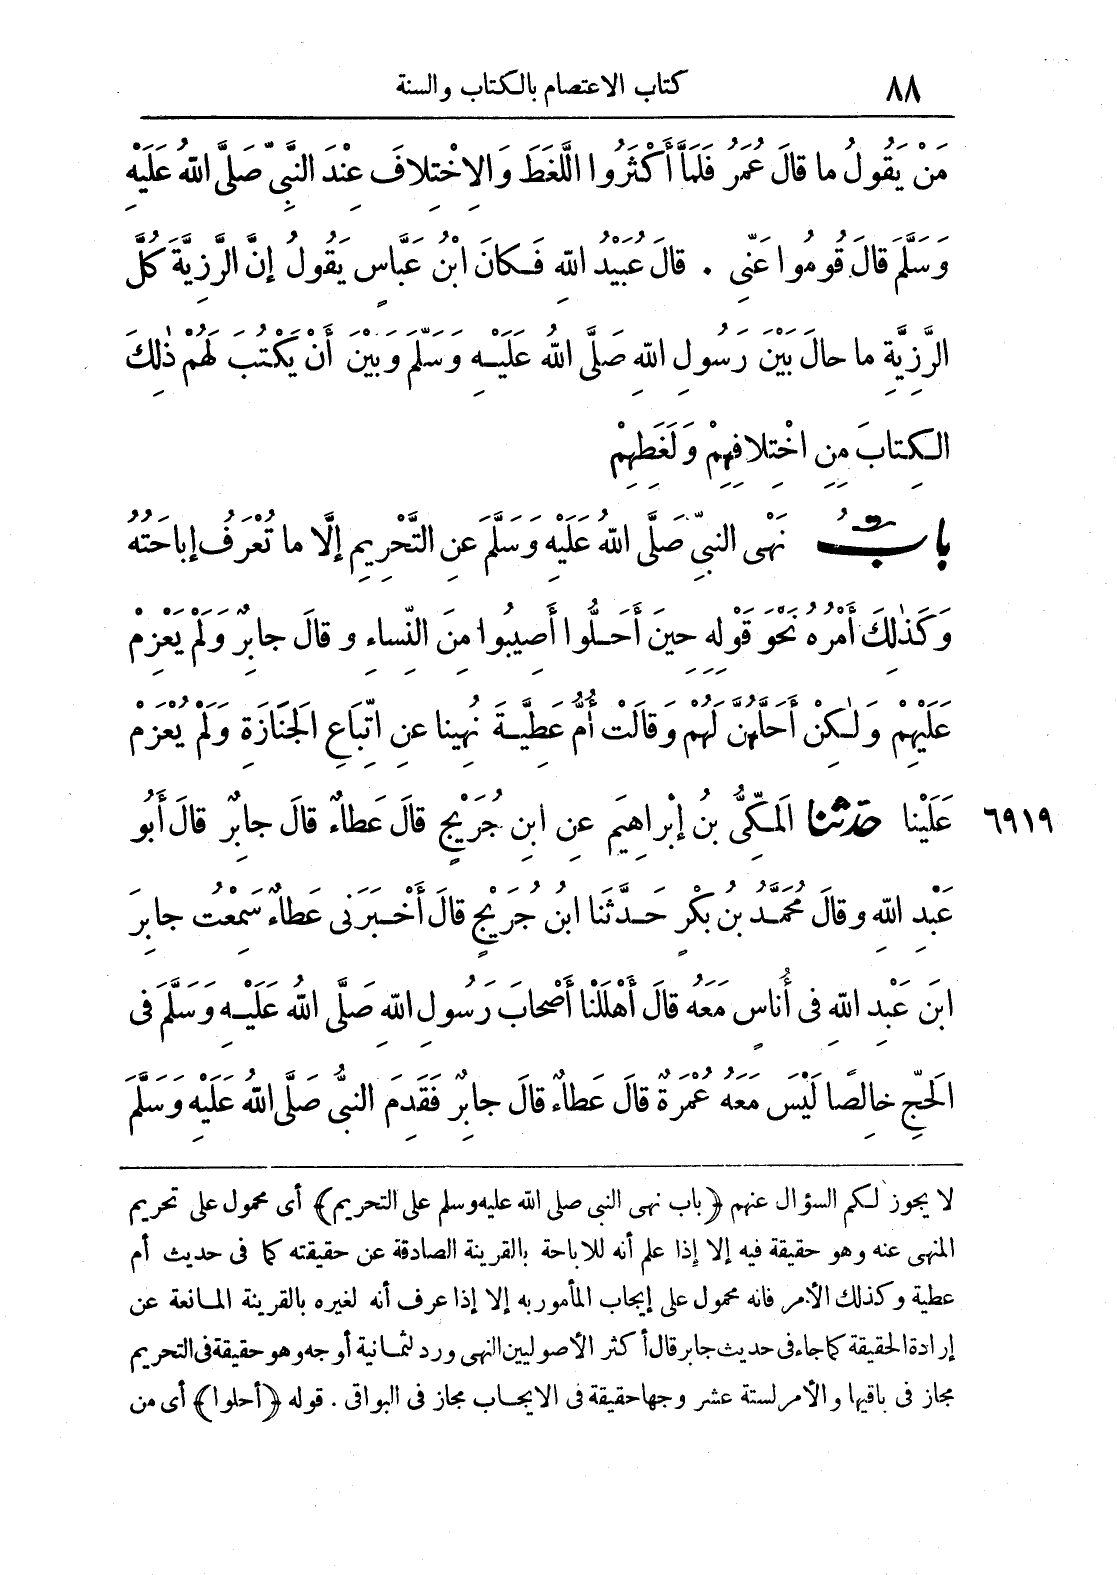 ٨٨ كتاب الاعتصام بالكتاب والسنة
مَنْ يَقُولُ ما قالَ عُمَرُ فَلَمَّا أَكْثَرُوا اللَّغَطَ وَالِاخْتِلافَ عِنْدَ النَّبِيِّ صَلَّى اللهُ عَلَيْهِ
وَسَلَّمَ قالَ قُومُوا عَنِّى . قالَ عُبَيْدُ اللهِ فَكانَ ابْنُ عَبَّاسٍ يَقُولُ إنَّ الرَّزِيَّةَ كُلَّ
الرَّزِيَّةِ ما حالَ بَيْنَ رَسُولِ اللهِ صَلَّى اللهُ عَلَيْهِ وَسَلَّمَ وَبَيْنَ أَنْ يَكْتُبَ لَهُمْ ذٰلِكَ
الكِتابَ مِنِ اخْتِلافِهِمْ وَلَغَطِهِمْ
بابُ نَهْىِ النبيِّ صَلَّى اللهُ عَلَيْهِ وَسَلَّمَ عَنِ التَّحْرِيمِ إلَّا ما تُعْرَفُ إباحَتُهُ
وَكَذٰلِكَ أَمْرُهُ نَحْوَ قَوْلِهِ حِينَ أَحَلُّوا أَصِيبُوا مِنَ النِّساءِ وقالَ جابِرٌ وَلَمْ يَعْزِمْ
عَلَيْهِمْ وَلٰكِنْ أَحَلَّهُنَّ لَهُمْ وَقالَتْ أُمُّ عَطِيَّةَ نُهِينا عنِ اتِّبَاعِ الجَنَازَةِ وَلَمْ يُعْزَمْ
٦٩١٩ عَلَيْنا حَدَّثَنا المَكِّىُّ بنُ إبْراهِيمَ عنِ ابنِ جُرَيْجٍ قالَ عَطاءٌ قالَ جابِرٌ قالَ أَبُو
عَبْدِ اللهِ وقالَ مُحَمَّدُ بنُ بَكْرٍ حَدَّثَنا ابنُ جُرَيْجٍ قالَ أَخْبَرَنى عَطاءٌ سَمِعْتُ جابِرَ
ابنَ عَبْدِ اللهِ فى أُناسٍ مَعَهُ قالَ أَهْلَلْنا أَصْحابَ رَسُولِ اللهِ صَلَّى اللهُ عَلَيْهِ وَسَلَّمَ فى
الَحجِّ خالِصًا لَيْسَ مَعَهُ عُمْرَةٌ قالَ عَطاءٌ قالَ جابِرٌ فَقَدِمَ النبىُّ صَلَّى اللهُ عَلَيْهِ وَسَلَّمَ
لا يجوز لكم السؤال عنهم ﴿باب نهى النبى صلى الله عليه وسلم على التحريم﴾ أى محمول على تحريم
المنهى عنه وهو حقيقة فيه إلا إذا علم أنه للاباحة بالقرينة الصادقة عن حقيقته كما فى حديث أم
عطية وكذلك الأمر فانه محمول على إيجاب المأمور به إلا إذا عرف أنه لغيره بالقرينة المانعة عن
إرادة الحقيقة كما جاء فى حديث جابر قال أكثر الأصوليين النهى ورد لثمانية أوجه وهو حقيقة فى التحريم
مجاز فى باقيها والأمر لستة عشر وجها حقيقة فى الايجاب مجاز فى البواقى . قوله ﴿أحلوا﴾ أى من